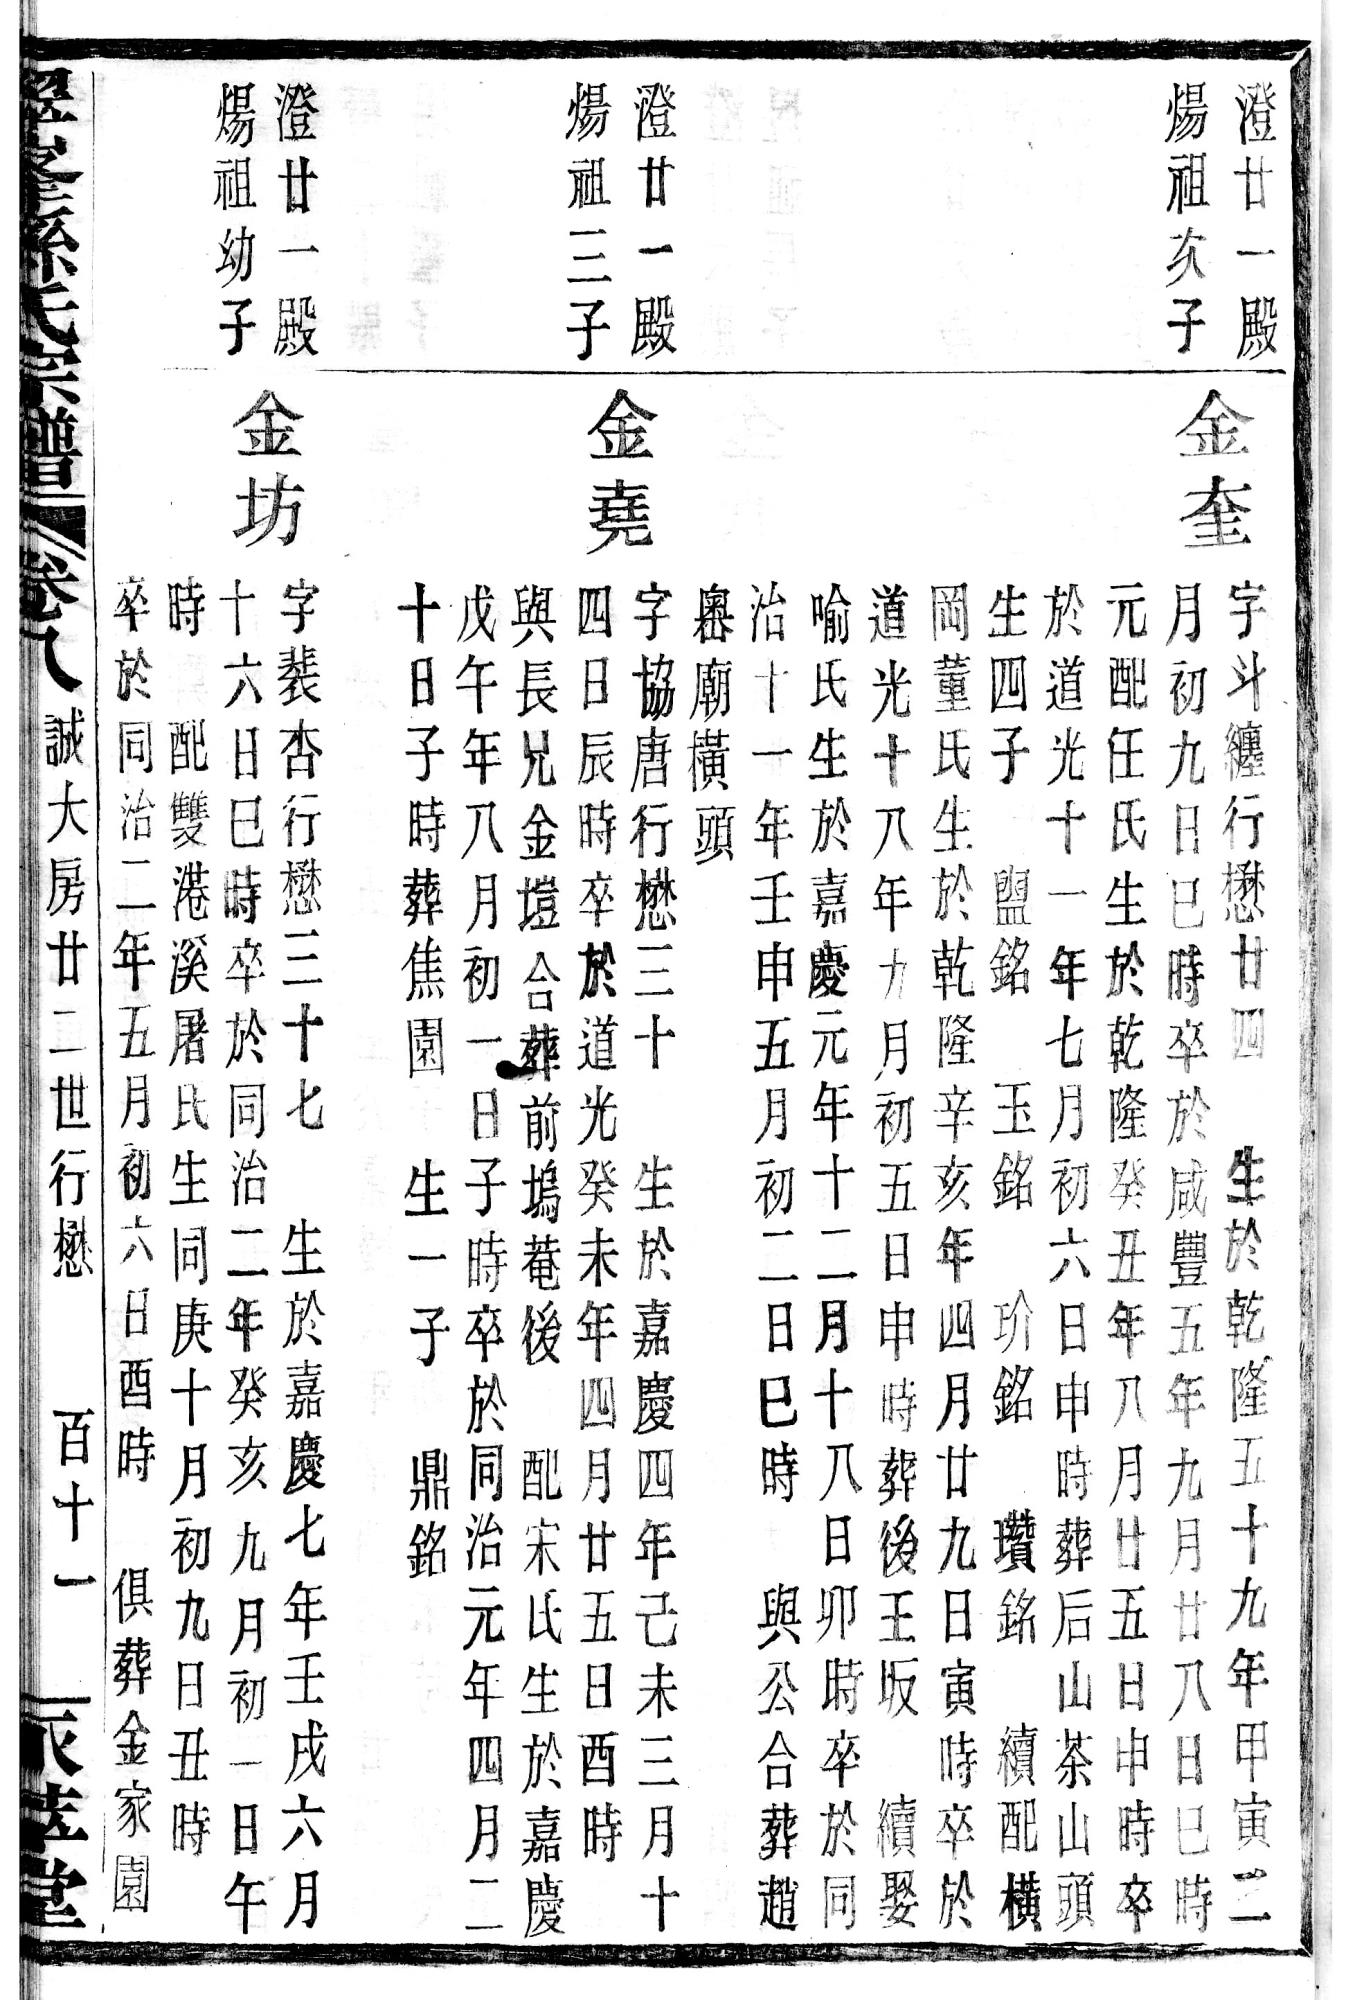 澄廿一殿
煬祖次子
金奎
字斗纏行懋廿四 生於乾隆五十九年甲寅二
月初九日巳時卒於咸豐五年九月廿八日巳時
元配任氏生於乾隆癸丑年八月廿五日申時卒
於道光十一年七月初六日申時葬后山茶山頭
生四子 盟銘 玉銘 玠銘 瓚銘 續配橫
岡董氏生於乾隆辛亥年四月廿九日寅時卒於
道光十八年九月初五日申時葬後王坂 續娶
喻氏生於嘉慶元年十二月十八日卯時卒於同
治十一年壬申五月初二日巳時 與公合葬趙
嶴廟橫頭
澄廿一殿
煬祖三子
金堯
字協唐行懋三十 生於嘉慶四年己未三月十
四日辰時卒於道光癸未年四月廿五日酉時
與長兄金塏合葬前塢菴後 配宋氏生於嘉慶
戊午年八月初一日子時卒於同治元年四月二
十日子時葬焦園 生一子 鼎銘
澄廿一殿
煬祖幼子
金坊
字裴杏行懋三十七 生於嘉慶七年壬戌六月
十六日巳時卒於同治二年癸亥九月初一日午
時 配雙港溪屠氏生同庚十月初九日丑時
卒於同治二年五月初六日酉時 俱葬金家園
孫氏宗譜 卷八 誠大房廿二世行懋 百十一 萃堂